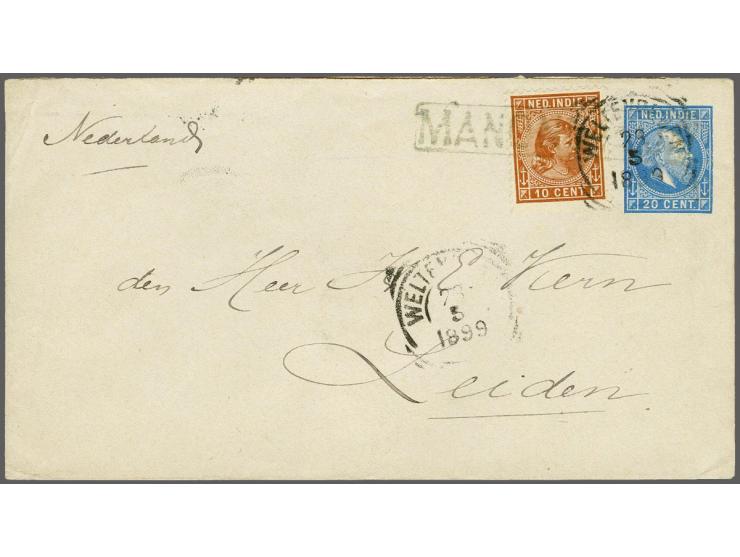 Nederland
MAN
NED. INDIE
10 CENT
WELTEV
28
5
189
NED. INDIE
20 CENT.
den Heer
WELTEV
5
1899
Leiden